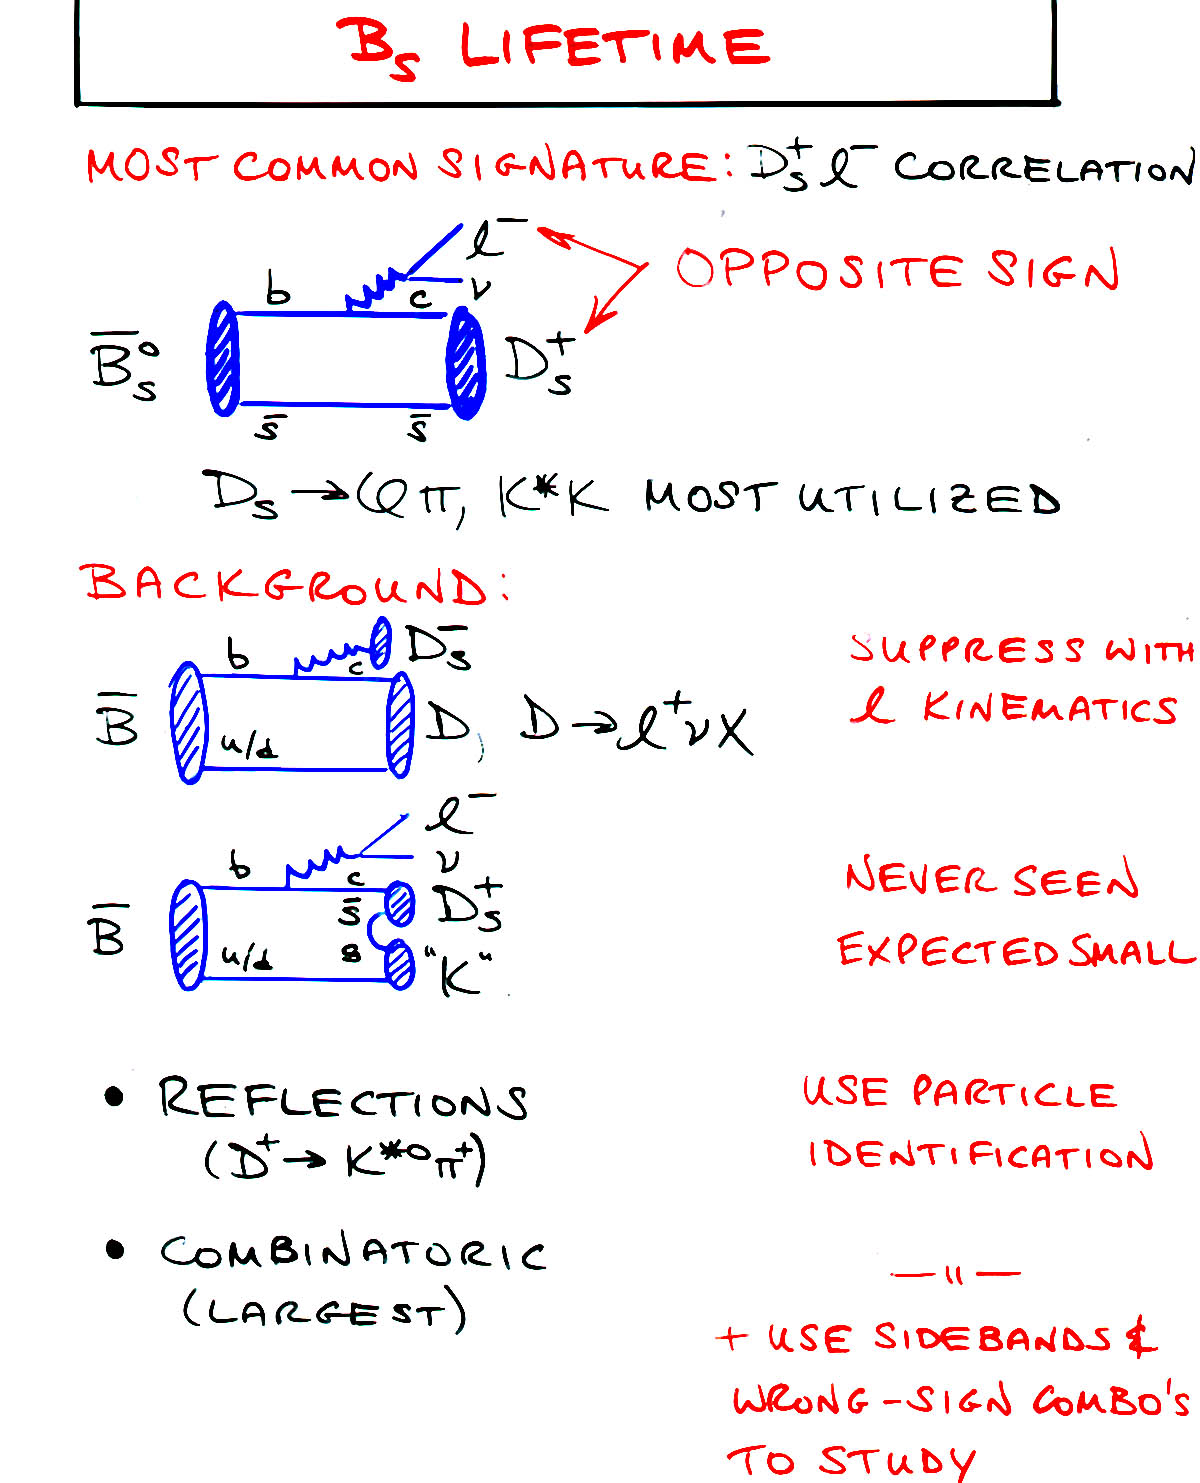 Bs LIFETIME
MOST COMMON SIGNATURE: Ds⁺ ℓ⁻ CORRELATION
ℓ⁻
OPPOSITE SIGN
b c ν
B̄s⁰ Ds⁺
s̄ s̄
Ds → φπ, K*K MOST UTILIZED
BACKGROUND:
b c Ds⁻
SUPPRESS WITH
B̄ u/d D, D → ℓ⁺νX
ℓ KINEMATICS
ℓ⁻
b ν
c
NEVER SEEN
s̄ Ds⁺
B̄ u/d s "K"
EXPECTED SMALL
• REFLECTIONS
(D⁺ → K*⁰π⁺)
USE PARTICLE
IDENTIFICATION
• COMBINATORIC
(LARGEST)
— " —
+ USE SIDEBANDS &
WRONG-SIGN COMBO'S
TO STUDY